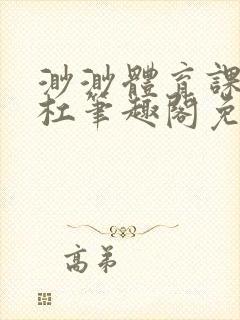 渺渺體育課
杜筆趣閣免
高弟